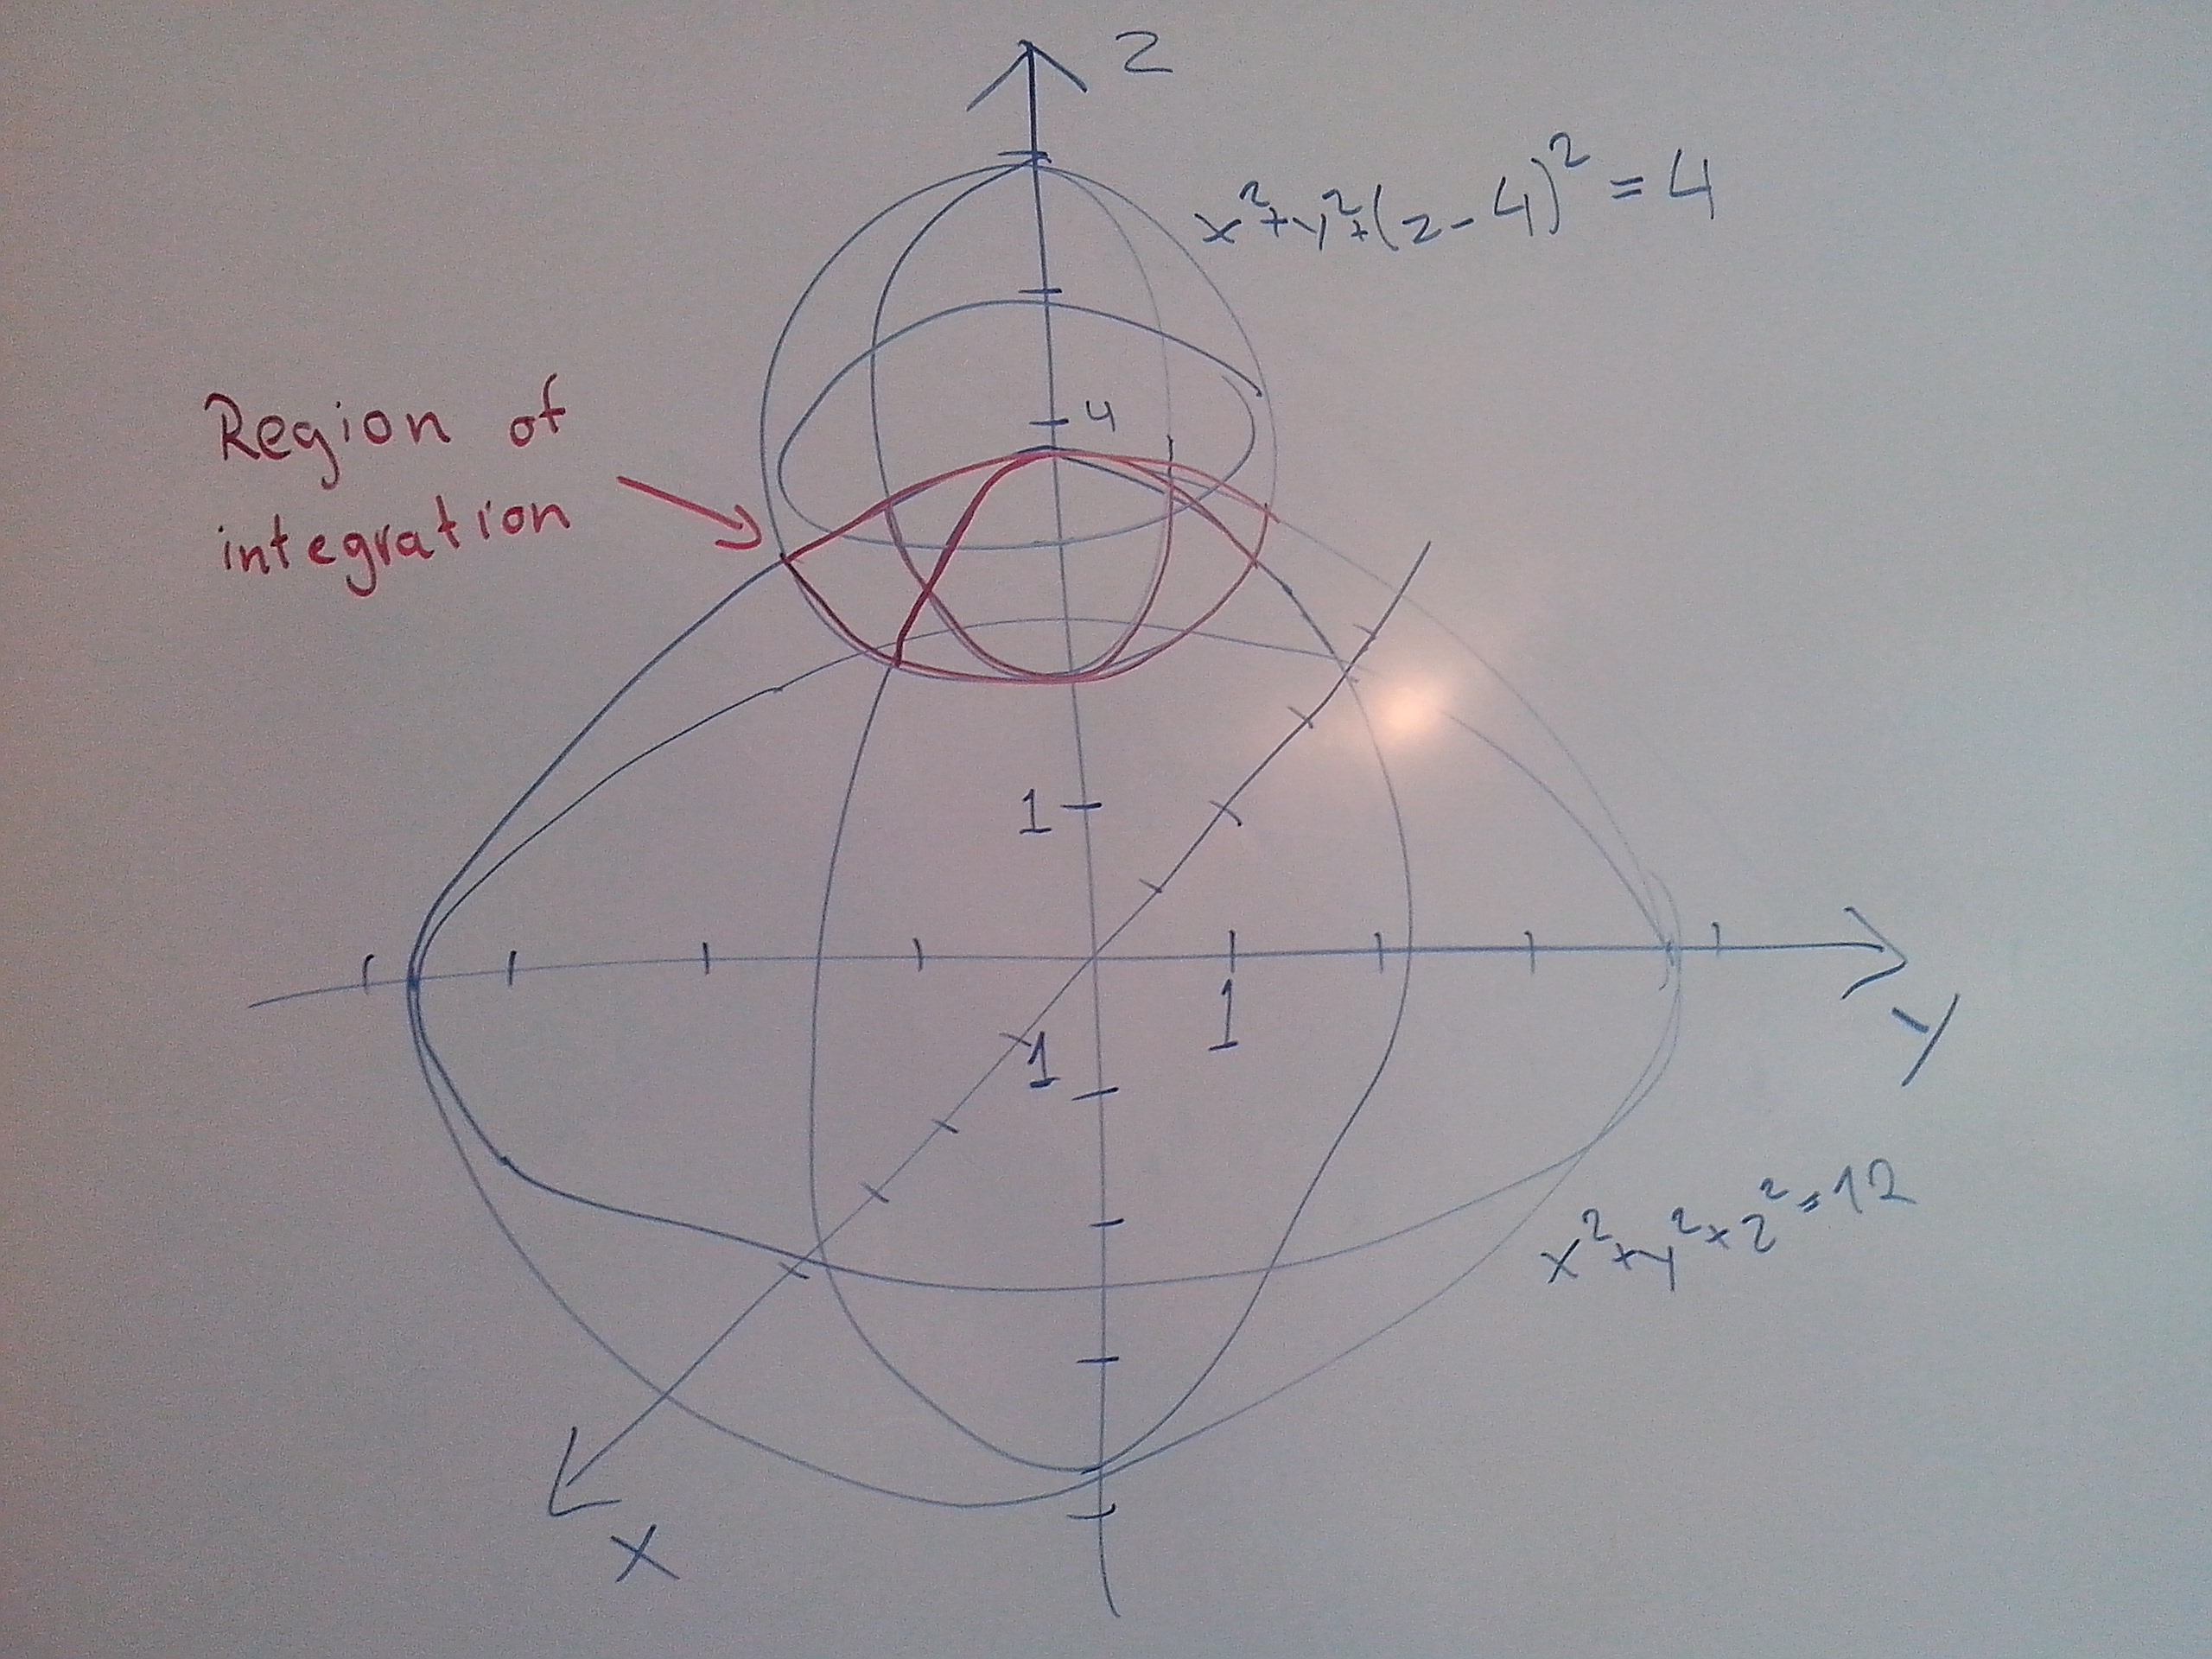 z
x²+y²+(z-4)²=4
Region of
integration
4
1
1
1
y
x²+y²+z²=12
x